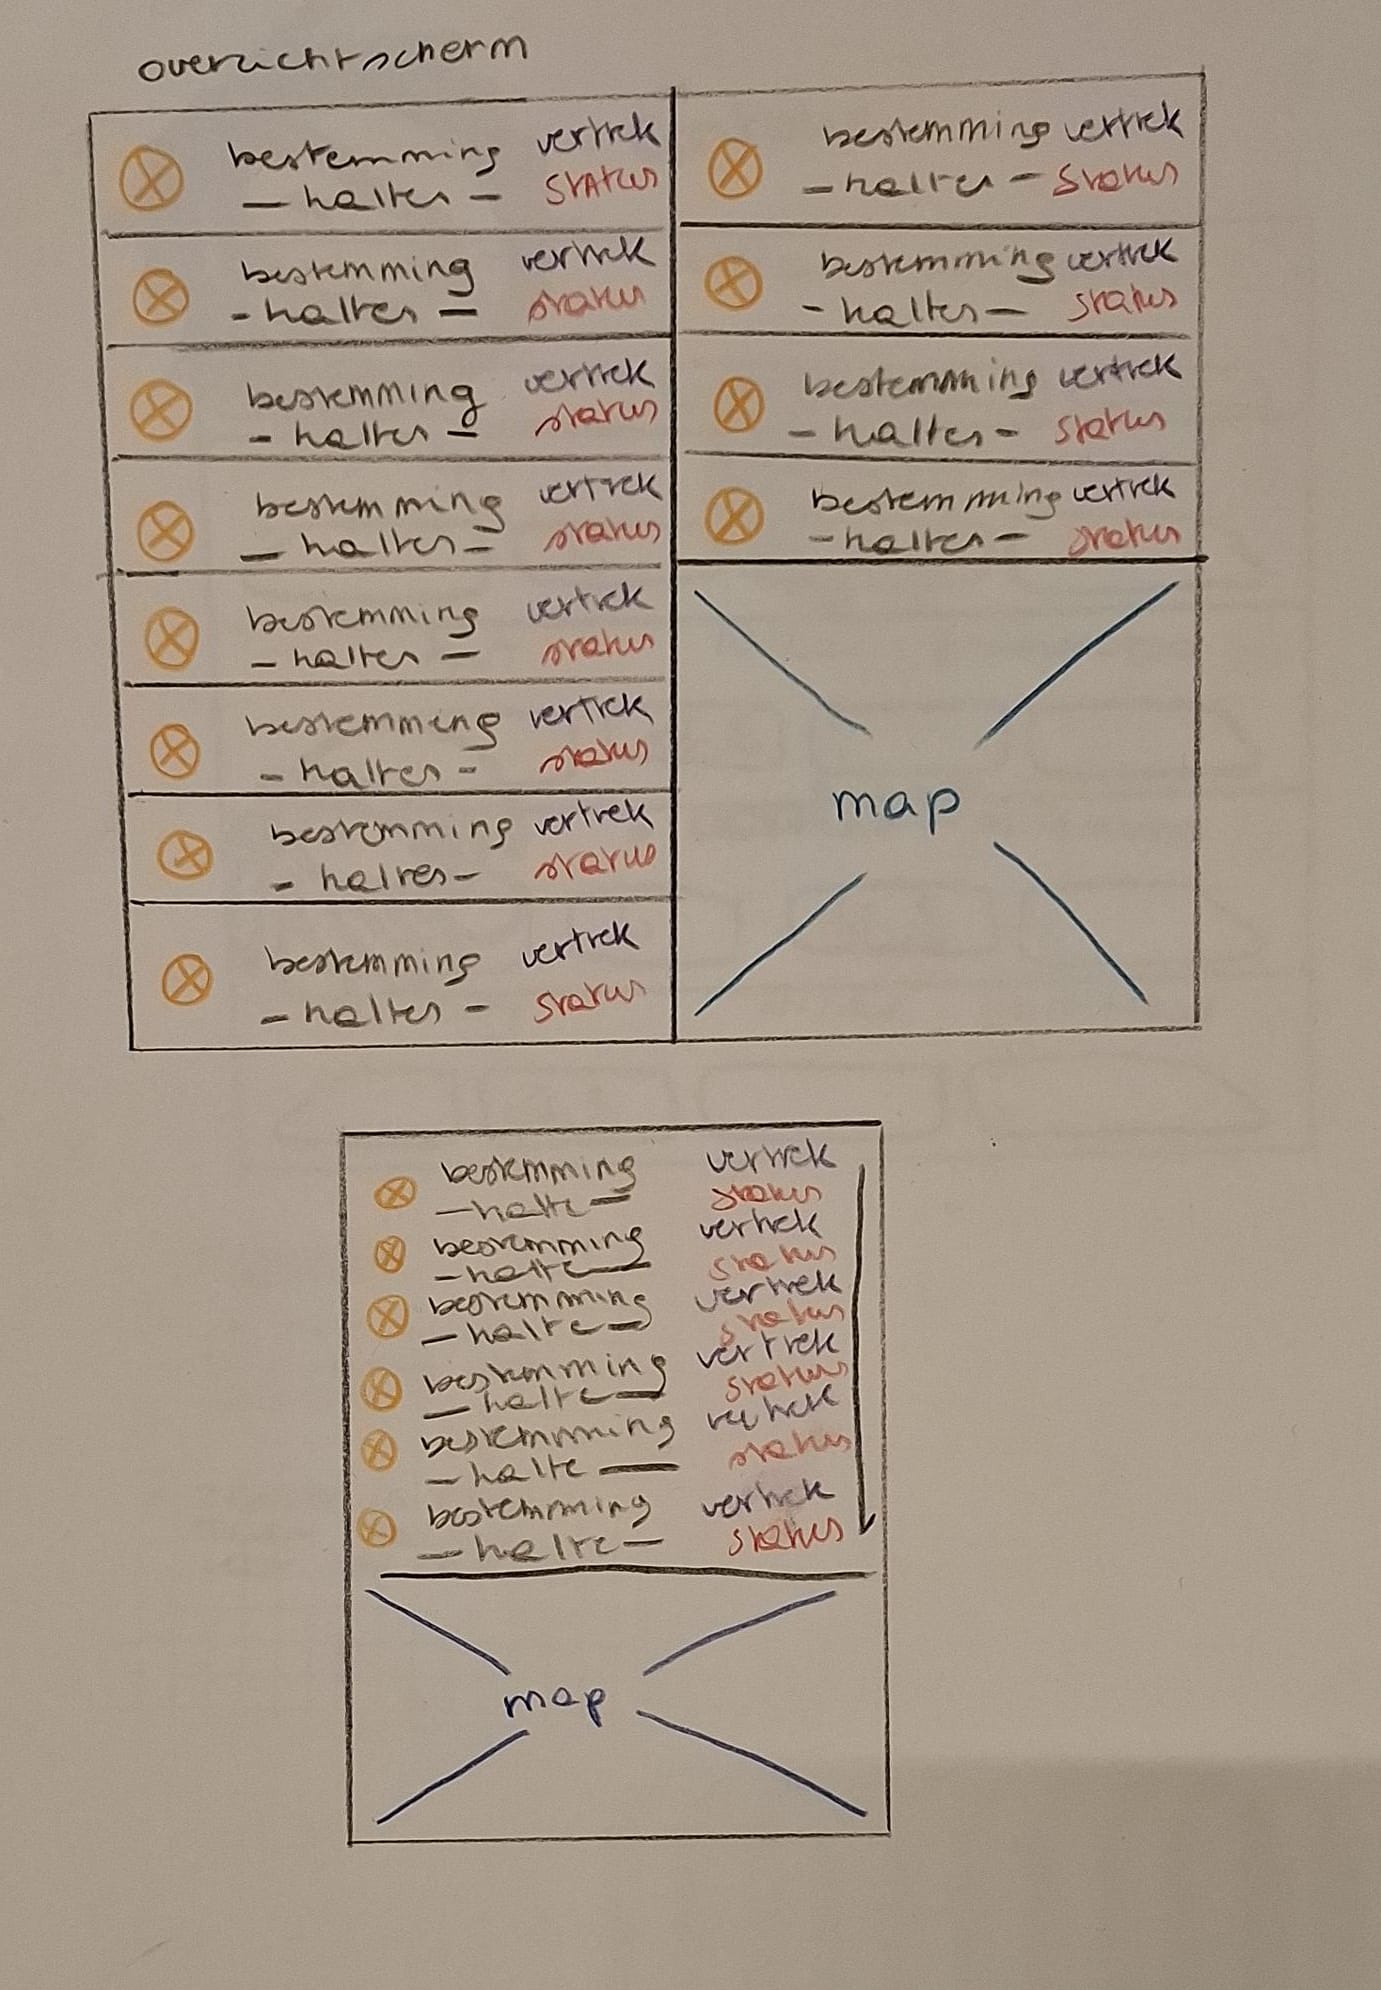 overzichtscherm
bestemming vertrek
- haltes - status
bestemming vertrek
- haltes - status
bestemming vertrek
- haltes - status
bestemming vertrek
- haltes - status
bestemming vertrek
- haltes - status
bestemming vertrek
- haltes - status
bestemming vertrek
- haltes - status
bestemming vertrek
- haltes - status
bestemming vertrek
- haltes - status
bestemming vertrek
- haltes - status
bestemming vertrek
- haltes - status
bestemming vertrek
- haltes - status
map
bestemming vertrek
- halte - status
bestemming vertrek
- halte - status
bestemming vertrek
- halte - status
bestemming vertrek
- halte - status
bestemming vertrek
- halte - status
bestemming vertrek
- halte - status
map